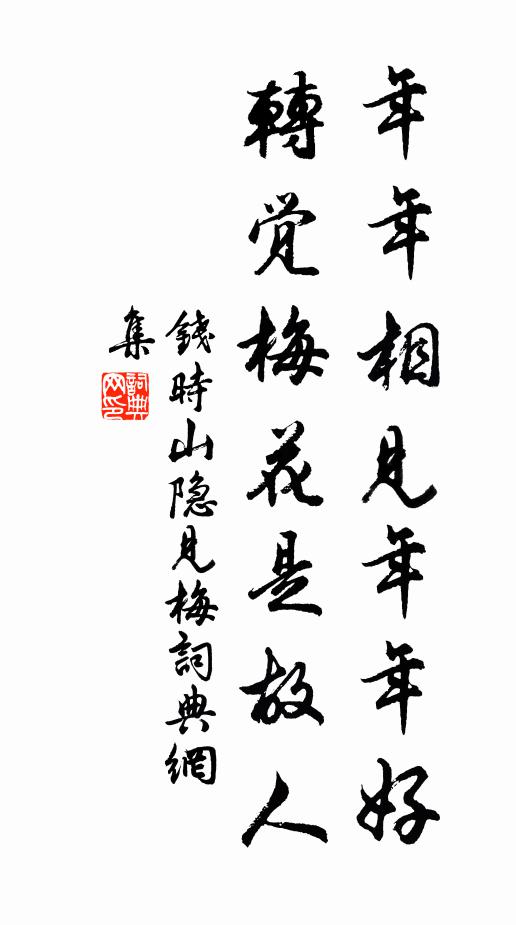 年年相見年年好
轉觉梅花是故人
錢時山隐見梅詞典網
集
詞典
网印